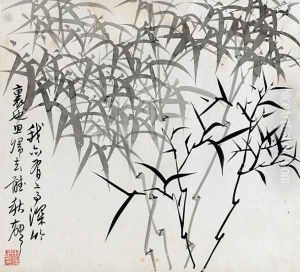 我亦有亭深竹
裏也思歸去聽秋聲